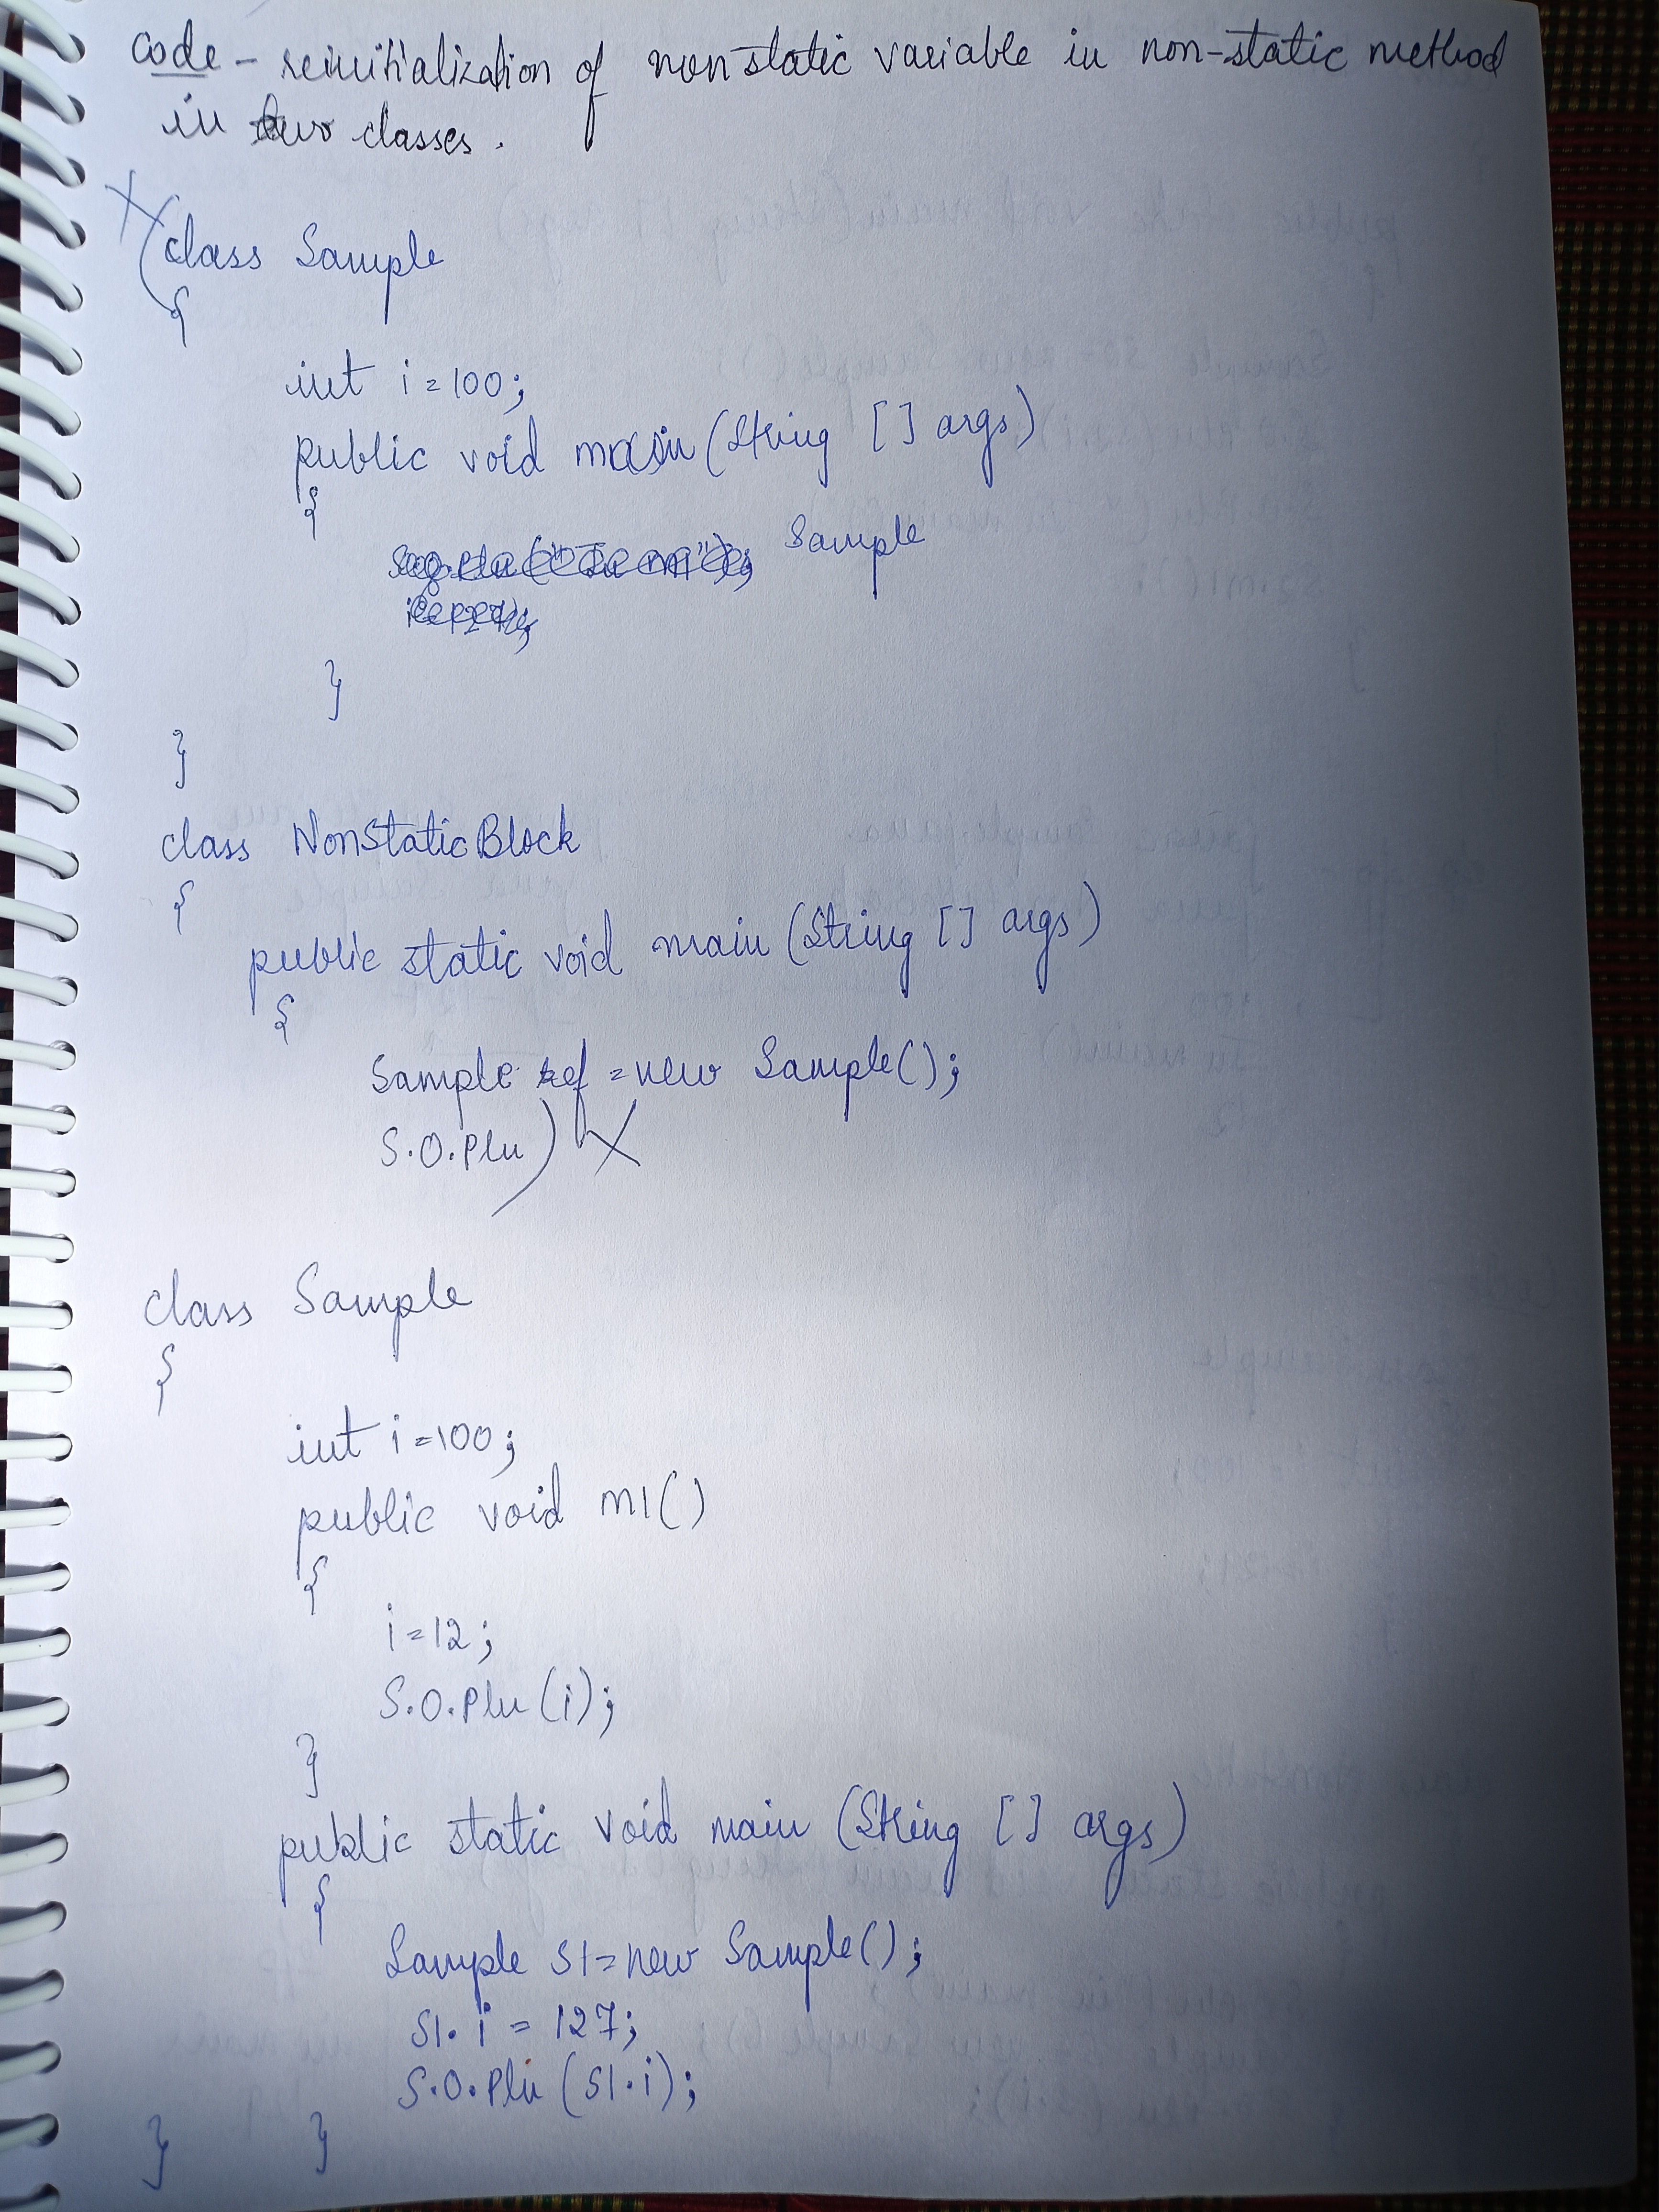 code - reinitialization of nonstatic variable in non-static method
in two classes.
class Sample
{
int i=100;
public void main (String [] args)
{
Sample
}
}
class NonStaticBlock
{
public static void main (String [] args)
{
Sample ref = new Sample();
S.O.Pln
class Sample
{
int i=100;
public void m1()
{
i=12;
S.O.Pln(i);
}
public static void main (String [] args)
{
Sample S1=new Sample();
S1.i = 127;
S.O.Pln (S1.i);
} }